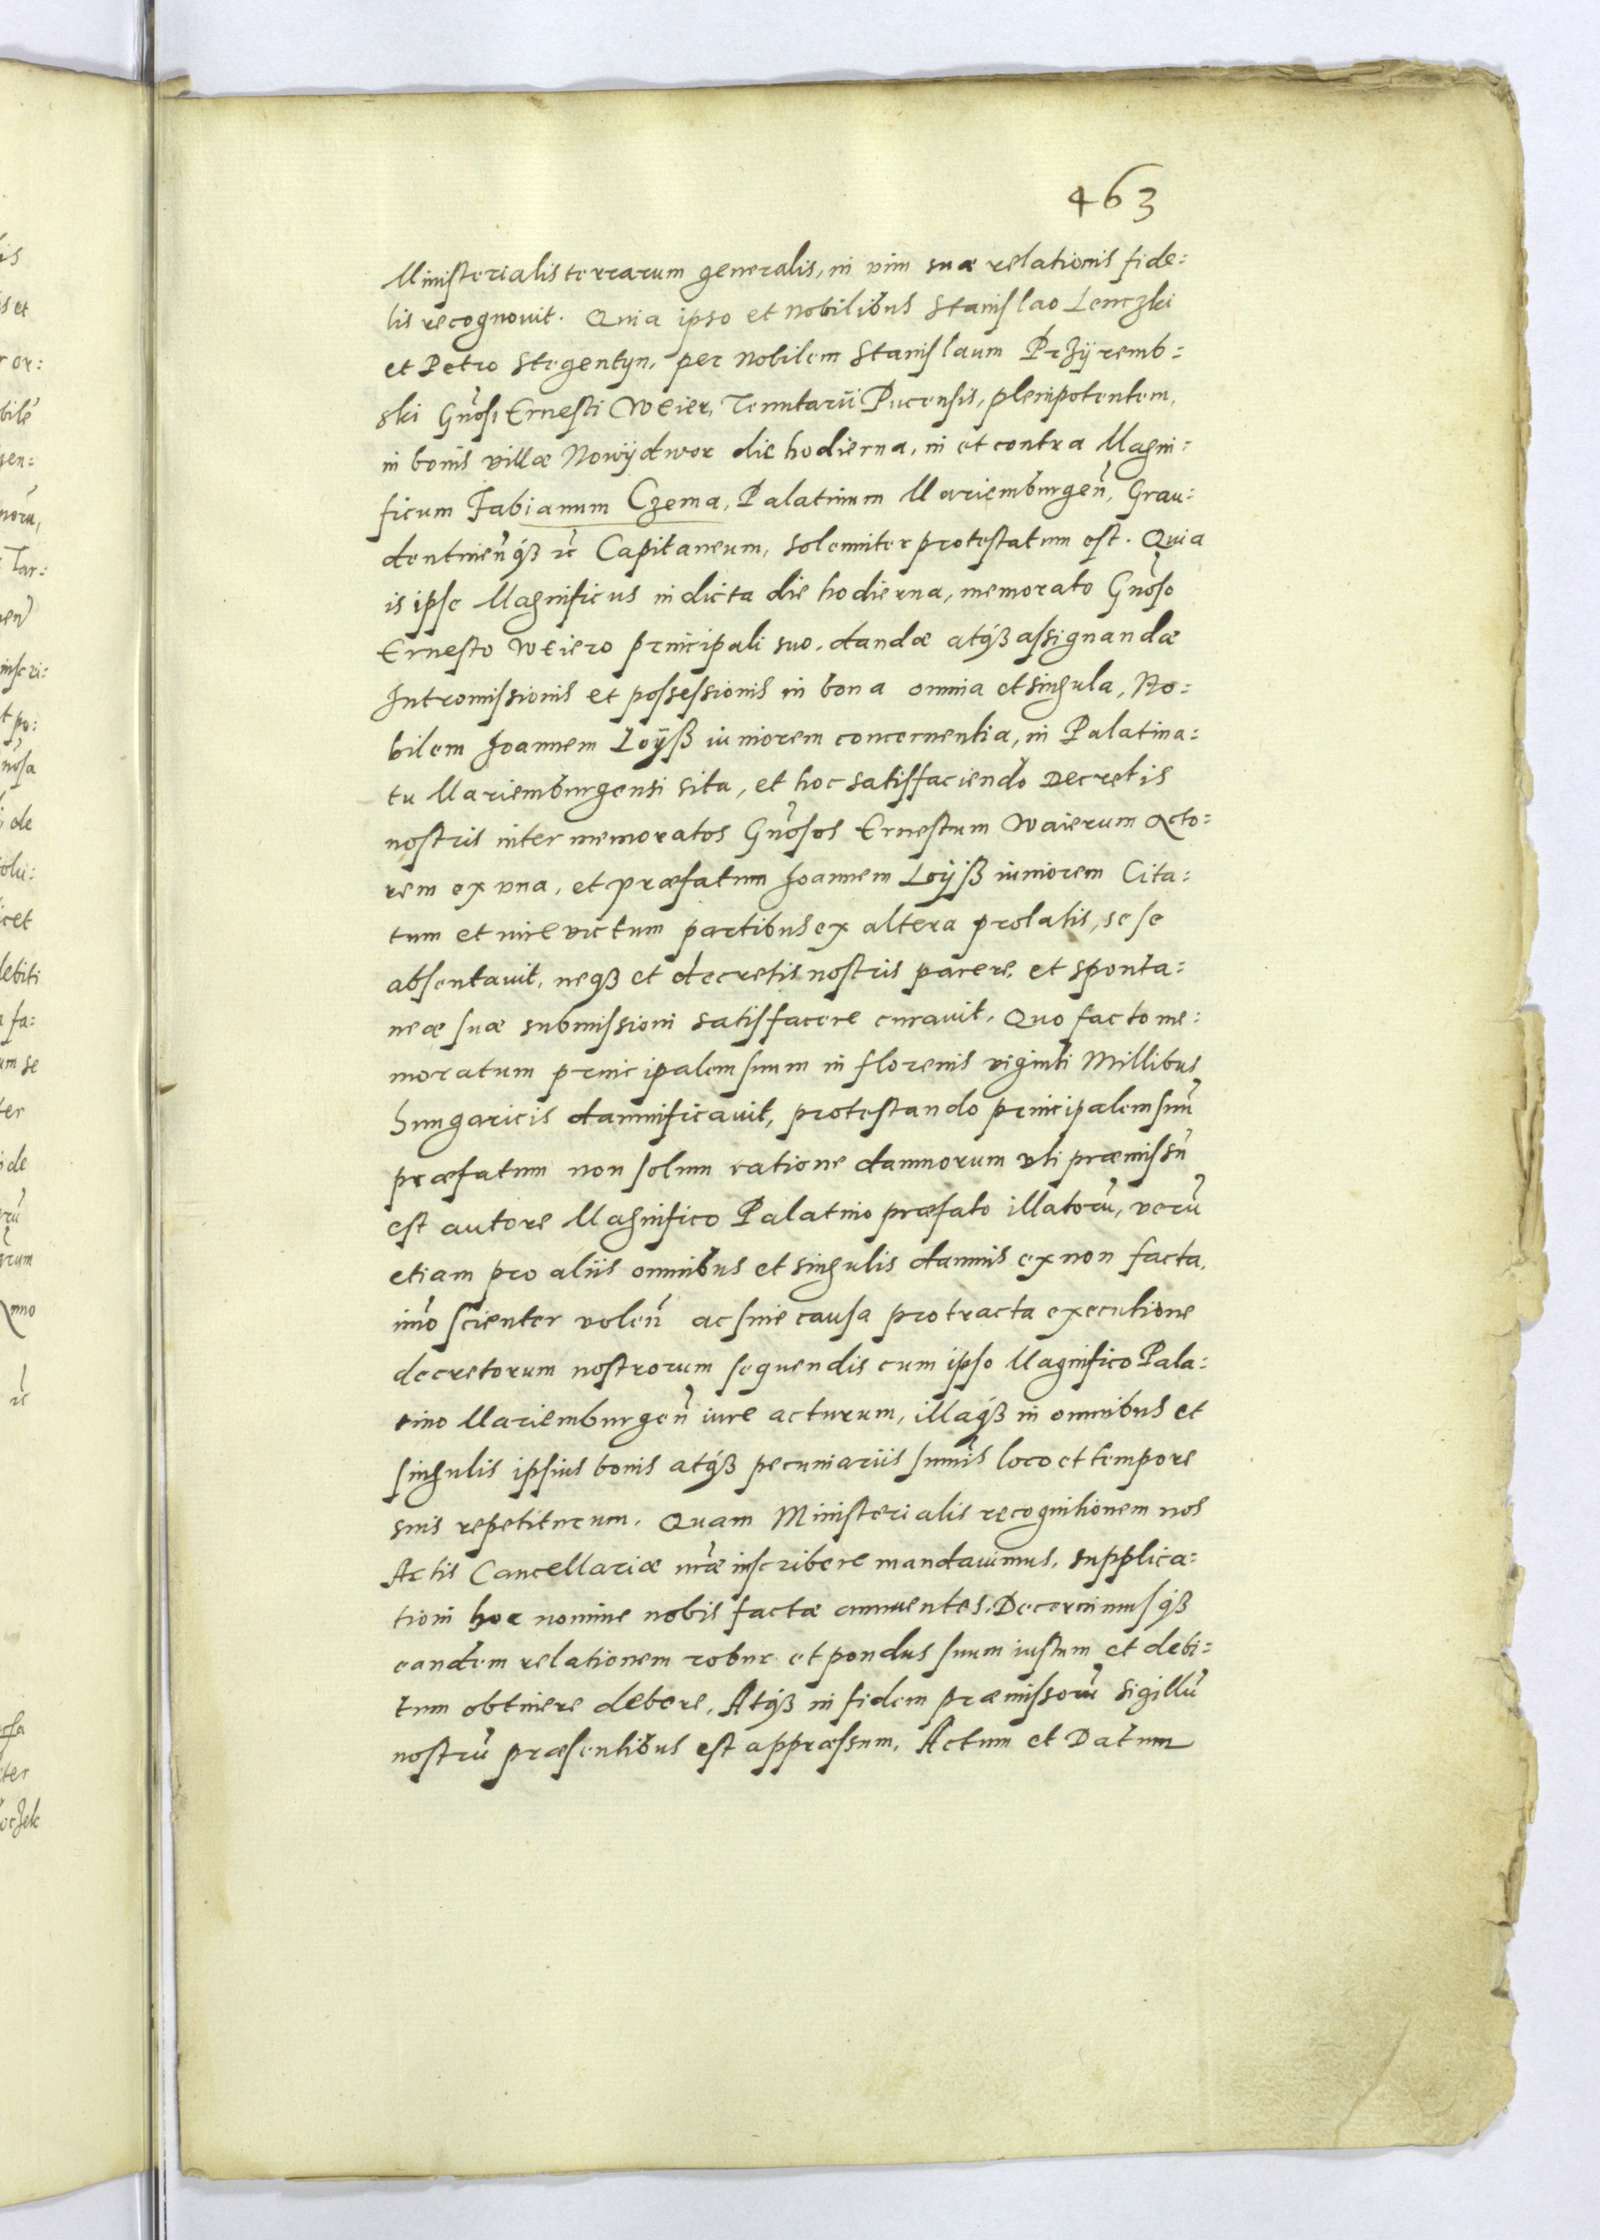 463
Ministerialis terrarum generalis, in vim suæ relationis fide:
lis recognovit. Quia ipso et Nobilibus Stanislao Lenczki
et Petro Stegentyn, per Nobilem Stanislaum Przÿremb:
ski Gnosi Ernesti Weier, Tenutarii Pucensis, plenipotentem,
in bonis villæ Nowÿdwor die hodierna, in et contra Magni:
ficum Fabianum Czema, Palatinum Mariemburgeñ, Grau:
dentineñqʒ ꝛc Capitaneum, solenniter protestatum est. Quia
is ipse Magnificus in dicta die hodierna, memorato Gnoso
Ernesto Weiero principali suo, dandæ atqʒ assignandæ
Intromissionis et possessionis in bona omnia et singula, No:
bilem Joannem Loÿß iuniorem concernentia, in Palatina:
tu Mariemburgensi sita, et hoc satisfaciendo Decretis
nostris inter memoratos Gnosos Ernestum Waierum Acto:
rem ex una, et præfatum Joannem Loÿß iuniorem Cita:
tum et iure victum partibus ex altera prolatis, sese
absentavit, neqʒ et decretis nostris parere, et sponta:
neæ suæ submissioni satisfacere curavit, Quo facto me:
moratum principalem suum in florenis viginti Millibus
hungaricis damnificavit, protestando principalem suũ
præfatum non solum ratione damnorum uti præmissũ
est autore Magnifico Palatino præfato illatorũ, verũ
etiam pro aliis omnibus et singulis damnis ex non facta,
imo scienter voleñ ac sine causa protracta executione
decretorum nostrorum sequendis cum ipso Magnifico Pala:
tino Mariemburgeñ iure acturum, illaqʒ in omnibus et
singulis ipsius bonis atqʒ pecuniariis sumis loco et tempore
suis repetiturum. Quam Ministerialis recognitionem nos
Actis Cancellariæ nræ inscribere mandavimus, supplica:
tioni hoc nomine nobis factæ annuentes. Decernimusqʒ
eandem relationem robur et pondus suum iustum et debi:
tum obtinere debere. Atqʒ in fidem præmissorũ sigillũ
nostrũ præsentibus est appræssum. Actum et Datum